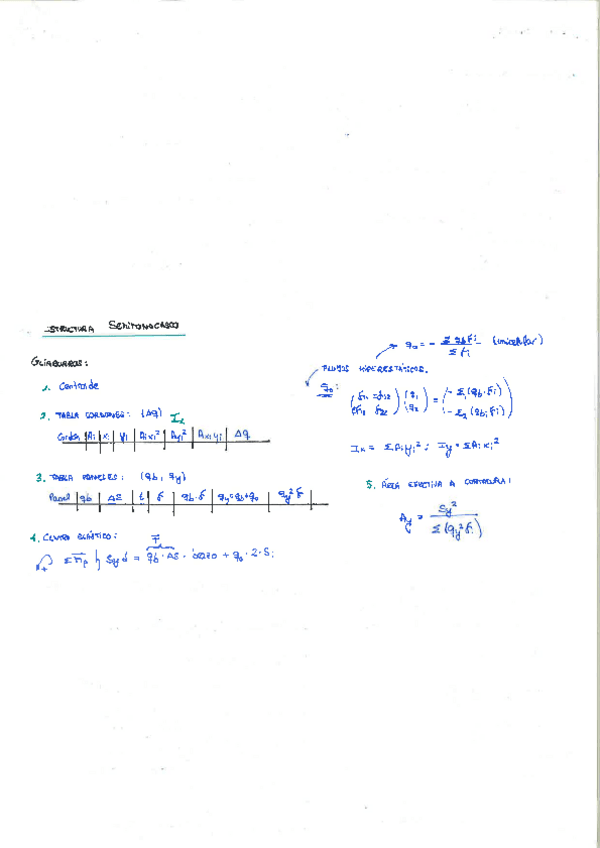 ESTRUCTURA SEMIMONOCASCO
1. Centroide
2. TABLA CORDONES: (Δq) Ix
Cordón | Ai | xi | yi | Aixi² | Ayi² | Axiyi | Δq
3. TABLA PANELES: (qb, qy)
Panel | qb | ΔS | t | δ | qb·δ | qy=qb+q0 | qy²δ
4. CENTRO ELÁSTICO: F
Sy d = qb·ΔS· brazo + q0·2·Si
q0 = - Σ qb δi / Σ δi (unicelular)
FLUJOS HIPERESTÁTICOS.
q0:
(δ11 δ12) (q1) = (- Σ1 (qb·δi))
(δ21 δ22) (q2) (- Σ2 (qbi δi))
Ix = ΣAi yi²; Iy = ΣAi xi²
5. ÁREA EFECTIVA A CORTADURA:
Ay = Sy² / Σ(qy² δi)